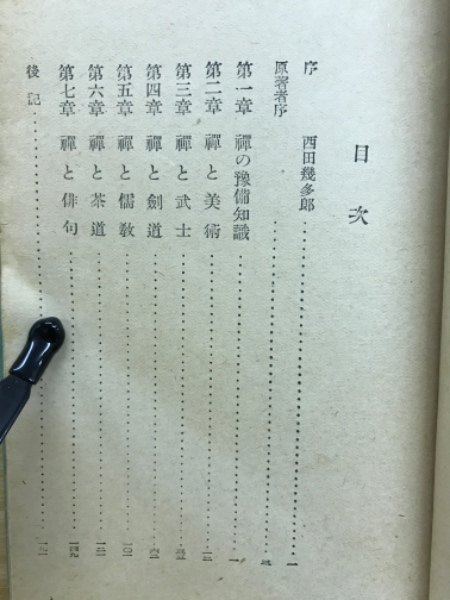 目次
序 西田幾多郎 一
原著者序
第一章 禪の豫備知識 一
第二章 禪と美術
第三章 禪と武士
第四章 禪と劍道
第五章 禪と儒敎 一〇一
第六章 禪と茶道
第七章 禪と俳句
後記